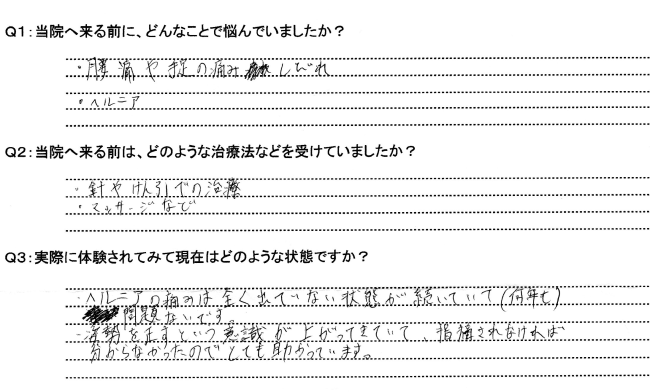 Q1:当院へ来る前に、どんなことで悩んでいましたか？
・腰痛や足の痛み しびれ
・ヘルニア
Q2:当院へ来る前は、どのような治療法などを受けていましたか？
・針やけん引での治療
・マッサージなど
Q3:実際に体験されてみて現在はどのような状態ですか？
・ヘルニアの痛みは全く出ていない状態が続いていて(何年も)
問題ないです。
・姿勢を正すという意識が上がってきていて、指摘されなければ
分からなかったのでとても助かっています。